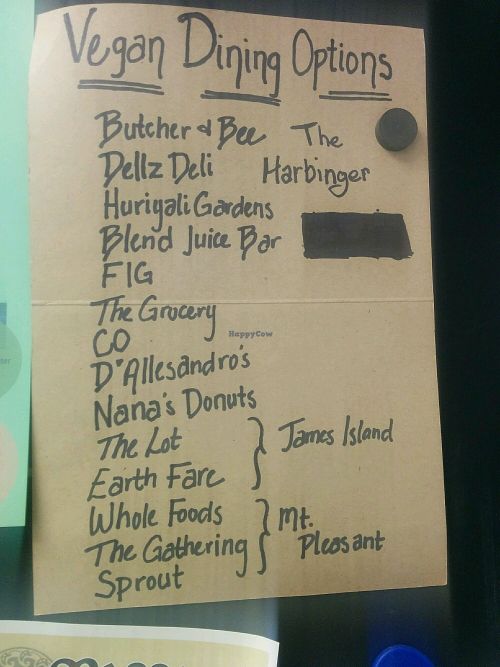 Vegan Dining Options
Butcher & Bee
The Harbinger
Dellz Deli
Huriyali Gardens
Blend Juice Bar
FIG
The Grocery
HappyCow
CO
D'Allesandro's
Nana's Donuts
The Lot
Earth Fare
James Island
Whole Foods
The Gathering
Sprout
Mt.
Pleasant